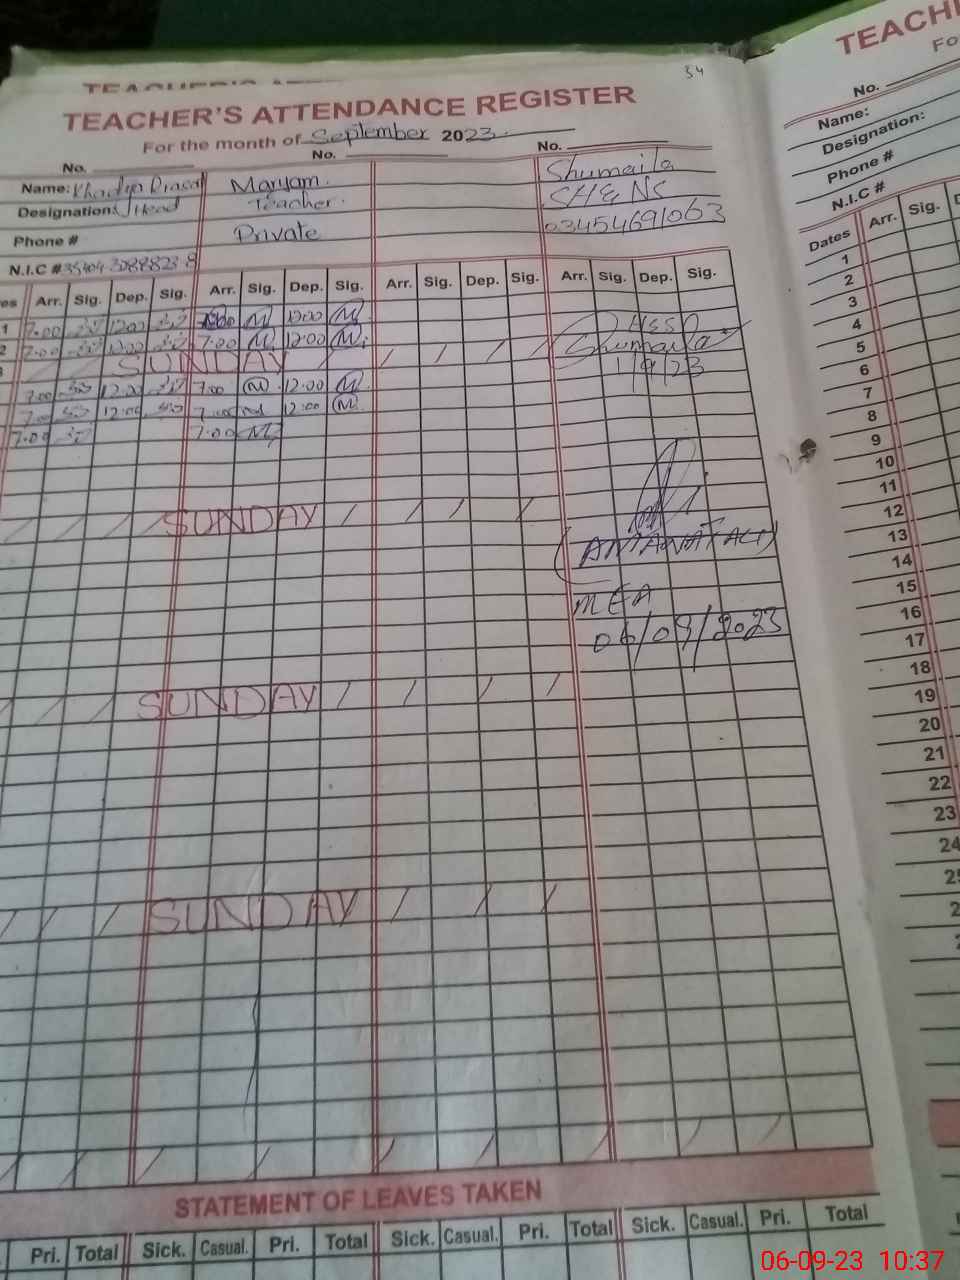 34
TEACHER'S ATTENDANCE REGISTER
For the month of September 2023.
No. No. No.
Name: Khadija Maryam. Shumaila
Designation: Head Teacher. SH&NS
Phone # Private 03454691063
N.I.C #
Arr. Sig. Dep. Sig. Arr. Sig. Dep. Sig. Arr. Sig. Dep. Sig. Arr. Sig. Dep. Sig.
1 7.00 12.00 M 12:00 M
2 7.00 12.00 7.00 M 12:00 M
SUNDAY
Shumaila
1/9/23
7.00 12.00 7.00 M 12.00 M
7.00 12:00 M 12:00 M
7.00 7.00 M
SUNDAY
(AMANAT ALI)
MEA
06/09/2023
SUNDAY
SUNDAY
STATEMENT OF LEAVES TAKEN
Pri. Total Sick. Casual. Pri. Total Sick. Casual. Pri. Total Sick. Casual. Pri. Total
TEACH
No.
Name:
Designation:
Phone #
N.I.C #
Dates Arr. Sig.
1
2
3
4
5
6
7
8
9
10
11
12
13
14
15
16
17
18
19
20
21
22
23
24
06-09-23 10:37